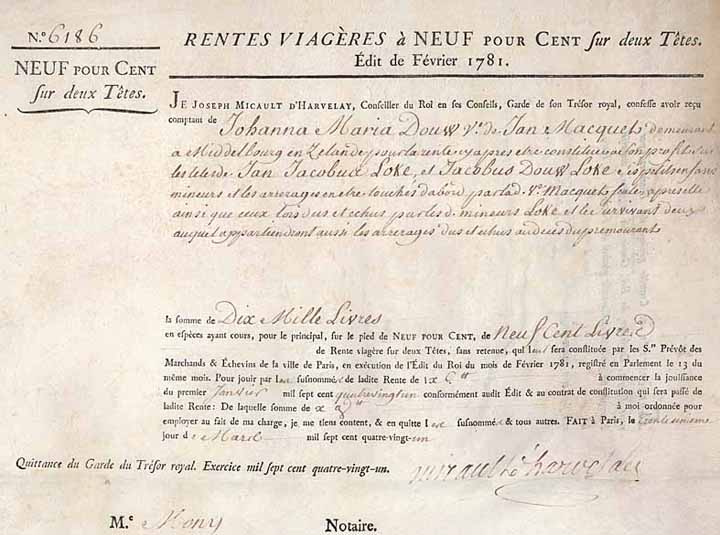 N.º 6186
NEUF POUR CENT
sur deux Têtes.
RENTES VIAGÈRES à NEUF POUR CENT sur deux Têtes.
Édit de Février 1781.
JE JOSEPH MICAULT D'HARVELAY, Conseiller du Roi en ses Conseils, Garde de son Trésor royal, confesse avoir reçu
comptant de Johanna Maria Douw Vᵉ. de Jan Macquet, demeurant
a Middelbourg en Zelande, pour la rente cy apres etre constituée a son profit sur
les tetes de Jan Jacobus Loke, et Jacobus Douw Loke ses petits enfans
mineurs et les arrerages en etre touchés d'abord par lad. Vᵉ. Macquet seule, apres elle
ainsi que ceux lors dus et echus par lesd. mineurs Loke et le survivant deux
auquel appartiendront aussi les arrerages dus et echus au deces du premourant
la somme de Dix Mille Livres
en espèces ayant cours, pour le principal, sur le pied de NEUF POUR CENT, de Neuf Cent Livres
de Rente viagère sur deux Têtes, sans retenue, qui sera constituée par les S.rs Prévôt des
Marchands & Échevins de la ville de Paris, en exécution de l'Édit du Roi du mois de Février 1781, registré en Parlement le 13 du
même mois. Pour jouir par susnommée de ladite Rente de ix C ᵗᵗ à commencer la jouissance
du premier Janvier mil sept cent quatrevingtun conformément audit Édit & au contrat de constitution qui sera passé de
ladite Rente: De laquelle somme de x ᵗᵗ à moi ordonnée pour
employer au fait de ma charge, je me tiens content, & en quitte susnommée & tous autres. FAIT à Paris, le trente unieme
jour de Mars mil sept cent quatre-vingt-un.
Quittance du Garde du Trésor royal. Exercice mil sept cent quatre-vingt-un.
micault d'harvelay
M.e Mony Notaire.